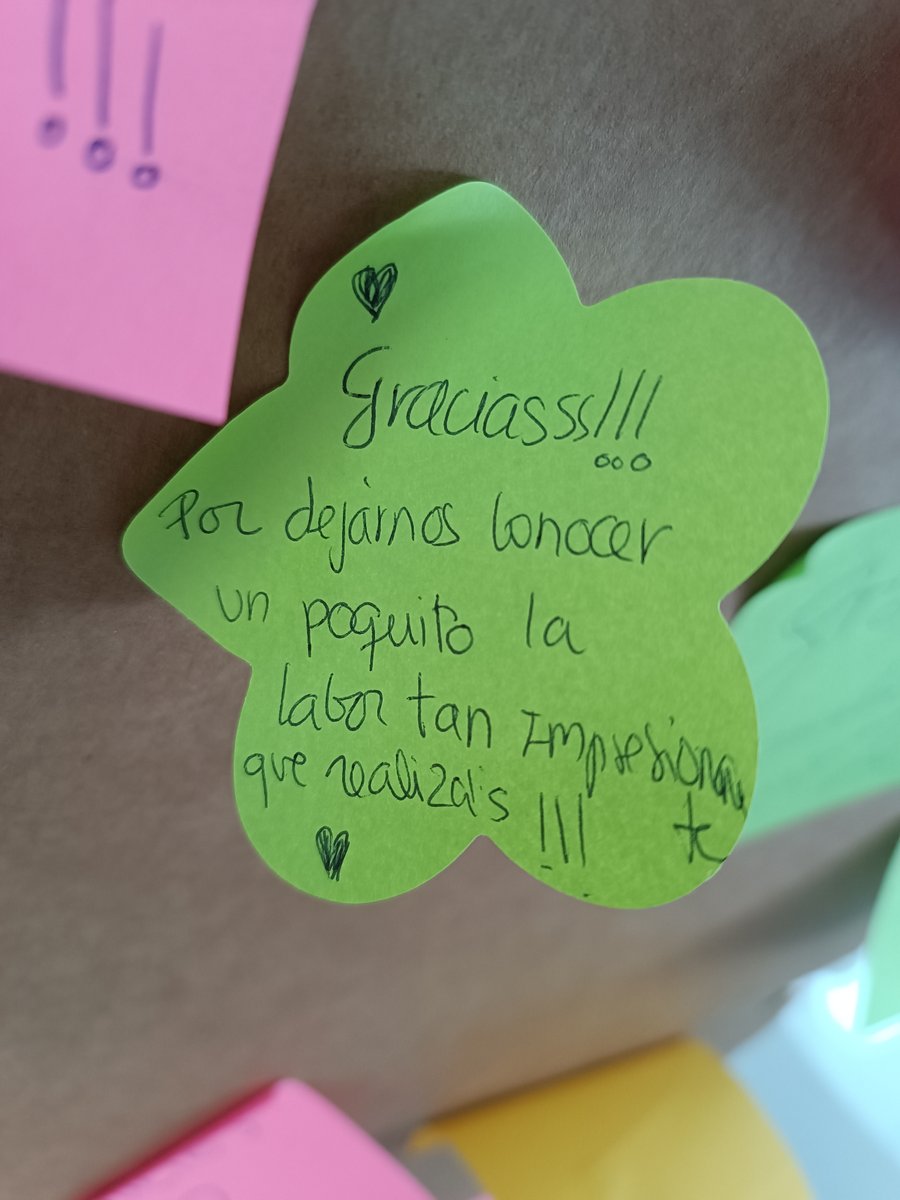 !!!
Graciasss!!!
Por dejárnos conocer
un poquito la
labor tan Impresionan
te
que realizáis !!!